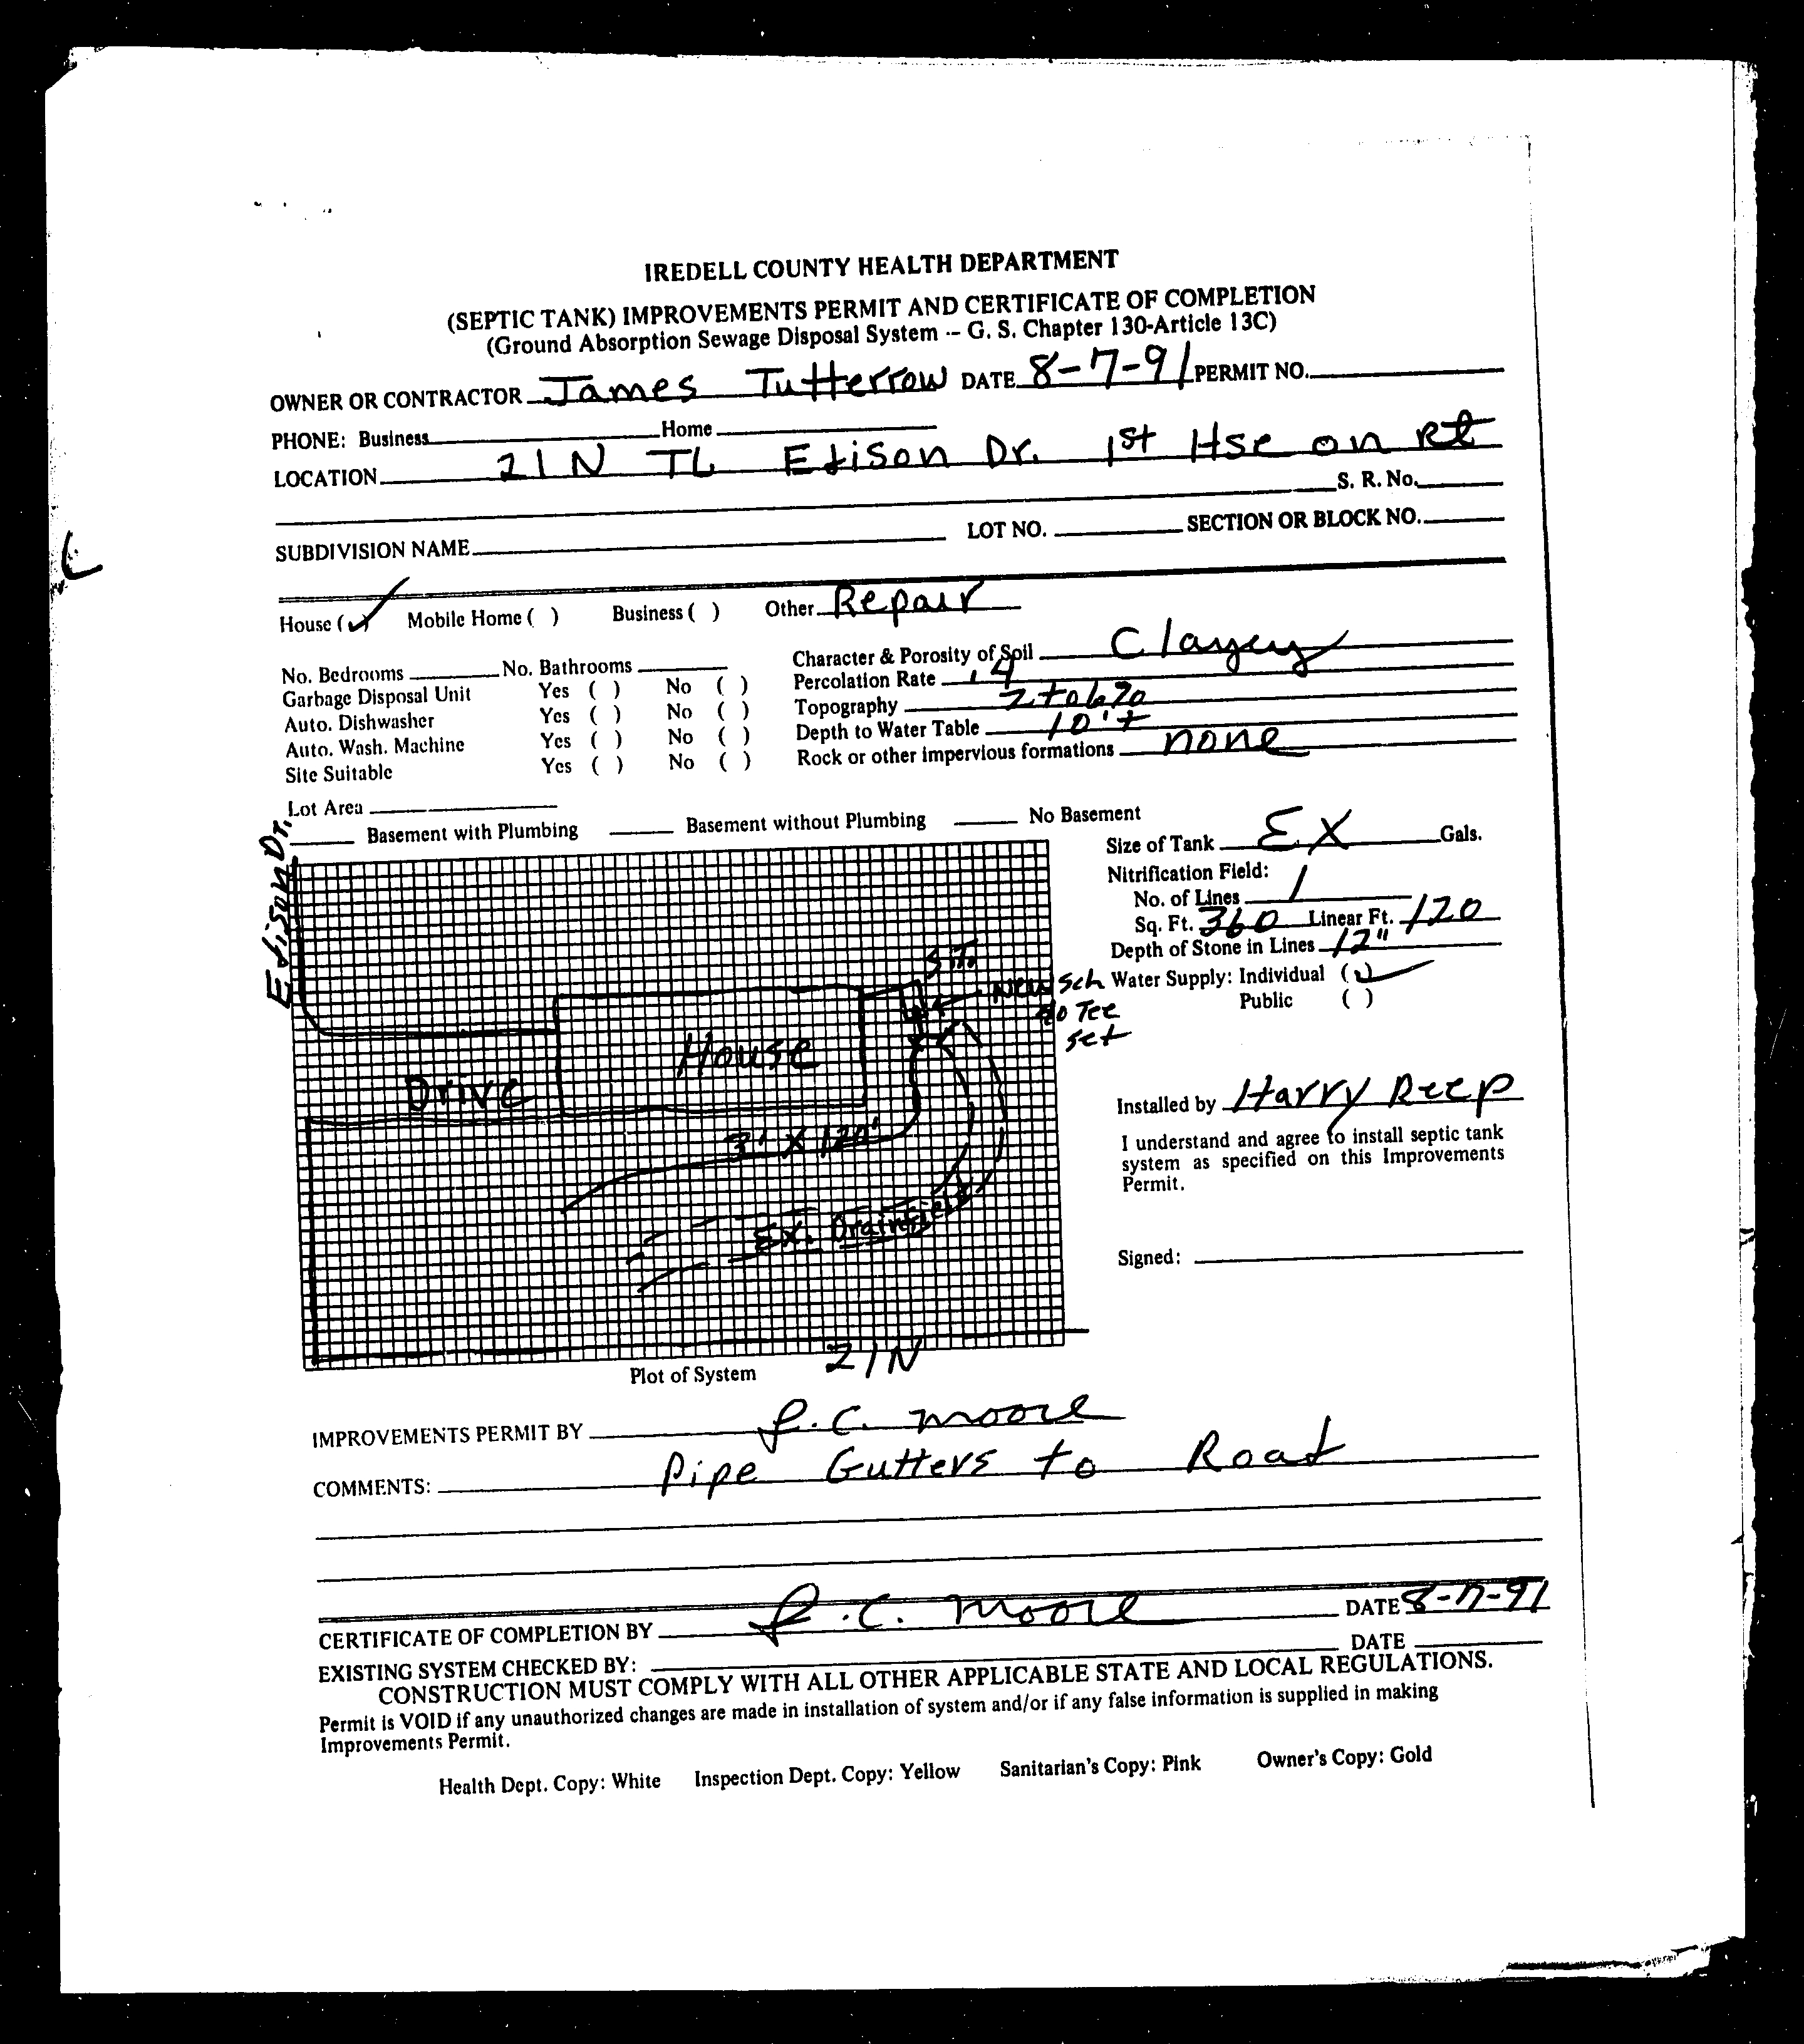 IREDELL COUNTY HEALTH DEPARTMENT
(SEPTIC TANK) IMPROVEMENTS PERMIT AND CERTIFICATE OF COMPLETION
(Ground Absorption Sewage Disposal System -- G. S. Chapter 130-Article 13C)
OWNER OR CONTRACTOR James Tutterrow DATE 8-7-91 PERMIT NO.
PHONE: Business Home
LOCATION 21N TL Edison Dr. 1st Hse on Rt
S. R. No.
SUBDIVISION NAME LOT NO. SECTION OR BLOCK NO.
House (✓) Mobile Home ( ) Business ( ) Other Repair
No. Bedrooms No. Bathrooms Character & Porosity of Soil Clayey
Garbage Disposal Unit Yes ( ) No ( ) Percolation Rate .4
Auto. Dishwasher Yes ( ) No ( ) Topography 2 to 6%
Auto. Wash. Machine Yes ( ) No ( ) Depth to Water Table 10'+
Site Suitable Yes ( ) No ( ) Rock or other impervious formations none
Lot Area
Basement with Plumbing Basement without Plumbing No Basement
Size of Tank EX Gals.
Nitrification Field:
No. of Lines 1
Sq. Ft. 360 Linear Ft. 120
Depth of Stone in Lines 12"
Water Supply: Individual (✓)
Public ( )
Edison Dr.
S.T.
New Sch
40 Tee
set
House
Drive
3' X 120'
Ex. Drainfield
21N
Installed by Harry Reep
I understand and agree to install septic tank
system as specified on this Improvements
Permit.
Signed:
Plot of System
IMPROVEMENTS PERMIT BY R.C. Moore
COMMENTS: Pipe Gutters to Road
CERTIFICATE OF COMPLETION BY R.C. Moore DATE 8-7-91
EXISTING SYSTEM CHECKED BY: DATE
CONSTRUCTION MUST COMPLY WITH ALL OTHER APPLICABLE STATE AND LOCAL REGULATIONS.
Permit is VOID if any unauthorized changes are made in installation of system and/or if any false information is supplied in making
Improvements Permit.
Health Dept. Copy: White Inspection Dept. Copy: Yellow Sanitarian's Copy: Pink Owner's Copy: Gold